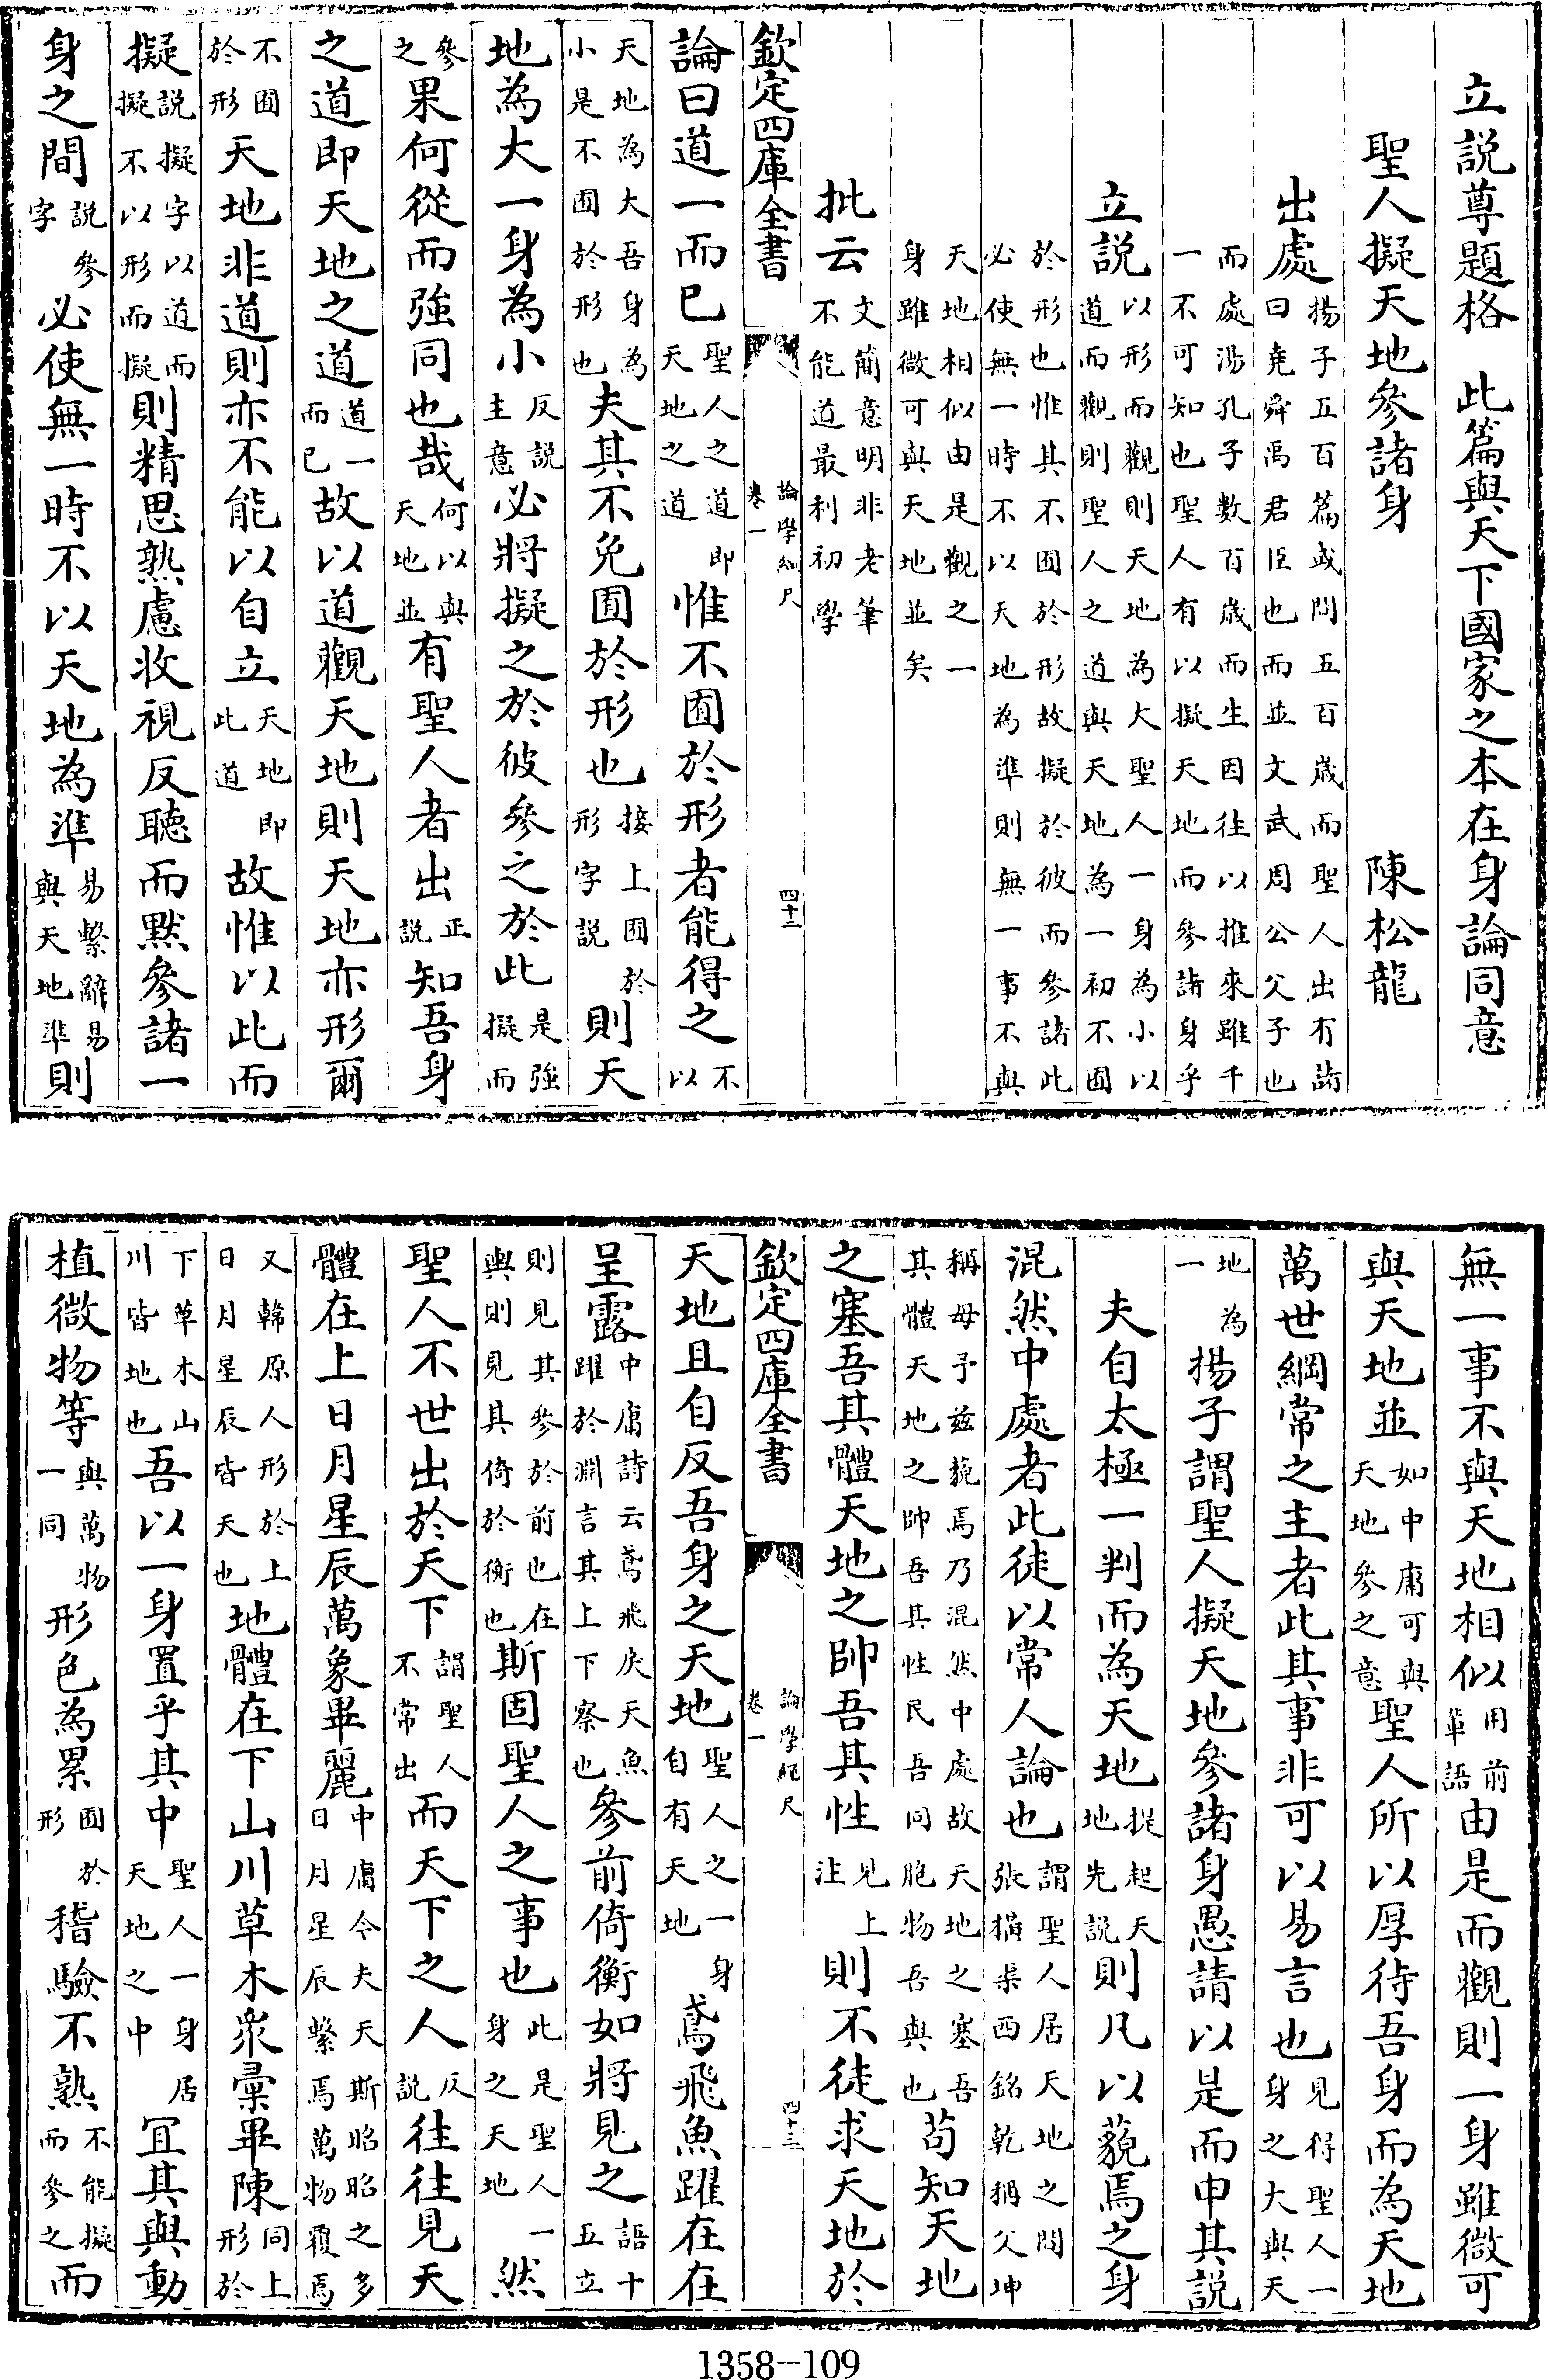 立說尊題格　此篇與天下國家之本在身論同意
聖人擬天地參諸身　陳松龍
出處揚子五百篇或問五百歲而聖人出有諸曰堯舜禹君臣也而並文武周公父子也
而處湯孔子數百歲而生因往以推來雖千一不可知也聖人有以擬天地而參諸身乎
立說以形而觀則天地為大聖人一身為小以道而觀則聖人之道與天地為一初不囿
於形也惟其不囿於形故擬於彼而參諸此必使無一時不以天地為準則無一事不與
天地相似由是觀之一身雖微可與天地並矣
批云文簡意明非老筆不能道最利初學
欽定四庫全書　論學繩尺卷一　四十二
論曰道一而已聖人之道即天地之道惟不囿於形者能得之不以
天地為大吾身為小是不囿於形也夫其不免囿於形也接上囿於形字說則天
地為大一身為小反說主意必將擬之於彼參之於此是強擬而
參之果何從而強同也哉何以與天地並有聖人者出正說知吾身
之道即天地之道道一而已故以道觀天地則天地亦形爾
不囿於形天地非道則亦不能以自立天地即此道故惟以此而
擬說擬字以道而擬不以形而擬則精思熟慮收視反聽而默參諸一
身之間說參字必使無一時不以天地為準易繫辭易與天地準則
無一事不與天地相似用前輩語由是而觀則一身雖微可
與天地並如中庸可與天地參之意聖人所以厚待吾身而為天地
萬世綱常之主者此其事非可以易言也見得聖人一身之大與天
地為一揚子謂聖人擬天地參諸身愚請以是而申其說
夫自太極一判而為天地提起天地先說則凡以藐焉之身
混然中處者此徒以常人論也謂聖人居天地之間張橫渠西銘乾稱父坤
稱母予茲藐焉乃混然中處故天地之塞吾其體天地之帥吾其性民吾同胞物吾與也苟知天地
之塞吾其體天地之帥吾其性見上注則不徒求天地於
欽定四庫全書　論學繩尺卷一　四十三
天地且自反吾身之天地聖人之一身自有天地鳶飛魚躍在在
呈露中庸詩云鳶飛戾天魚躍於淵言其上下察也參前倚衡如將見之語十五立
則見其參於前也在輿則見其倚於衡也斯固聖人之事也此是聖人一身之天地然
聖人不世出於天下謂聖人不常出而天下之人反說往往見天
體在上日月星辰萬象畢麗中庸今夫天斯昭昭之多日月星辰繫焉萬物覆焉
又韓原人形於上日月星辰皆天也地體在下山川草木眾彙畢陳同上形於
下草木山川皆地也吾以一身置乎其中聖人一身居天地之中宜其與動
植微物等與萬物一同形色為累囿於形稽驗不熟不能擬而參之而
1358-109